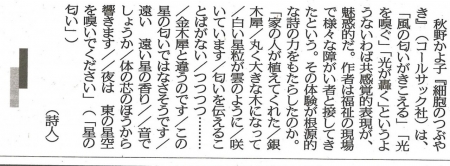 秋野かよ子『細胞のつぶや
き』（コールサック社）は、
「風の匂いがきこえる」「光
を嗅ぐ」「光が轟く」というよ
うないわば共感覚的表現が、
魅惑的だ。作者は福祉の現場
で様々な障がい者と接してき
たという。その体験が根源的
な詩の力をもたらしたのか。
「家の人が植えてくれた／銀
木犀／丸く大きな木になって
／白い星粒が雲のように／咲
いています／匂いを伝えるこ
とばがない／つつつつ……
／金木犀と違うのです／この
星の匂いではなさそうです／
遠い　遠い星の香り／／音で
しょうか／体の芯のほうから
響きます／／夜は　東の星空
を嗅いでください」（「星の
匂い」）
（詩人）